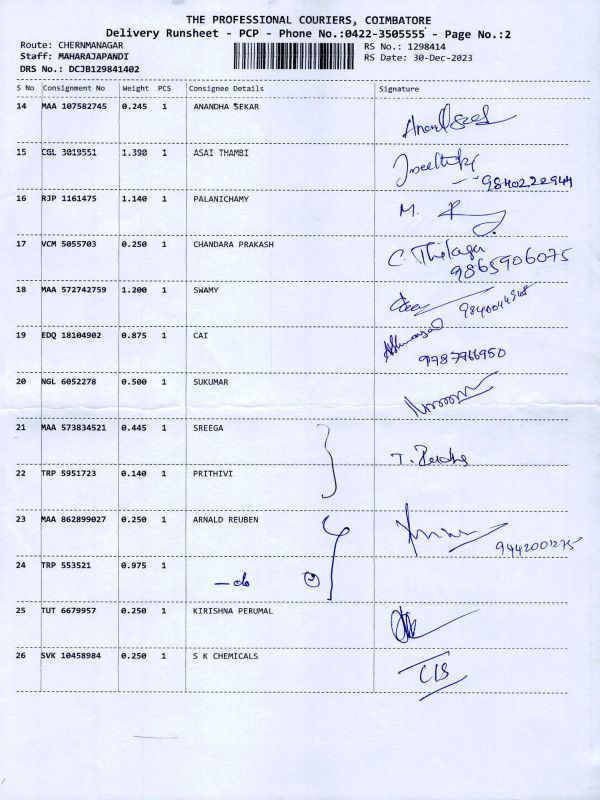 THE PROFESSIONAL COURIERS, COIMBATORE
Delivery Runsheet - PCP - Phone No.:0422-3505555 - Page No.:2
Route: CHERNMANAGAR RS No.: 1298414
Staff: MAHARAJAPANDI RS Date: 30-Dec-2023
DRS No.: DCJB129841402
S No Consignment No Weight PCS Consignee Details Signature
14 MAA 107582745 0.245 1 ANANDHA SEKAR
15 CGL 3019551 1.390 1 ASAI THAMBI
9840222944
16 RJP 1161475 1.140 1 PALANICHAMY M.
17 VCM 5055703 0.250 1 CHANDARA PRAKASH C. Thilaga
9865906075
18 MAA 572742759 1.200 1 SWAMY
19 EDQ 18104902 0.875 1 CAI
9787766950
20 NGL 6052278 0.500 1 SUKUMAR
21 MAA 573834521 0.445 1 SREEGA
22 TRP 5951723 0.140 1 PRITHIVI
23 MAA 862899027 0.250 1 ARNALD REUBEN
9442001275
24 TRP 553521 0.975 1
-do 2
25 TUT 6679957 0.250 1 KIRISHNA PERUMAL
26 SVK 10458984 0.250 1 S K CHEMICALS